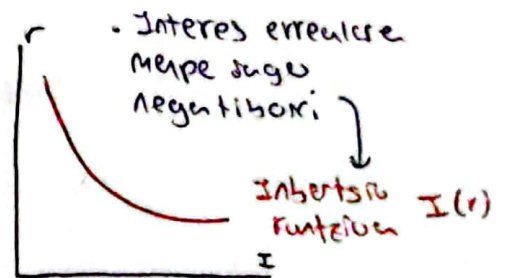 r
· Interes errealare
menpe dago
negatiboki
Inbertsio
funtzioa I(r)
I